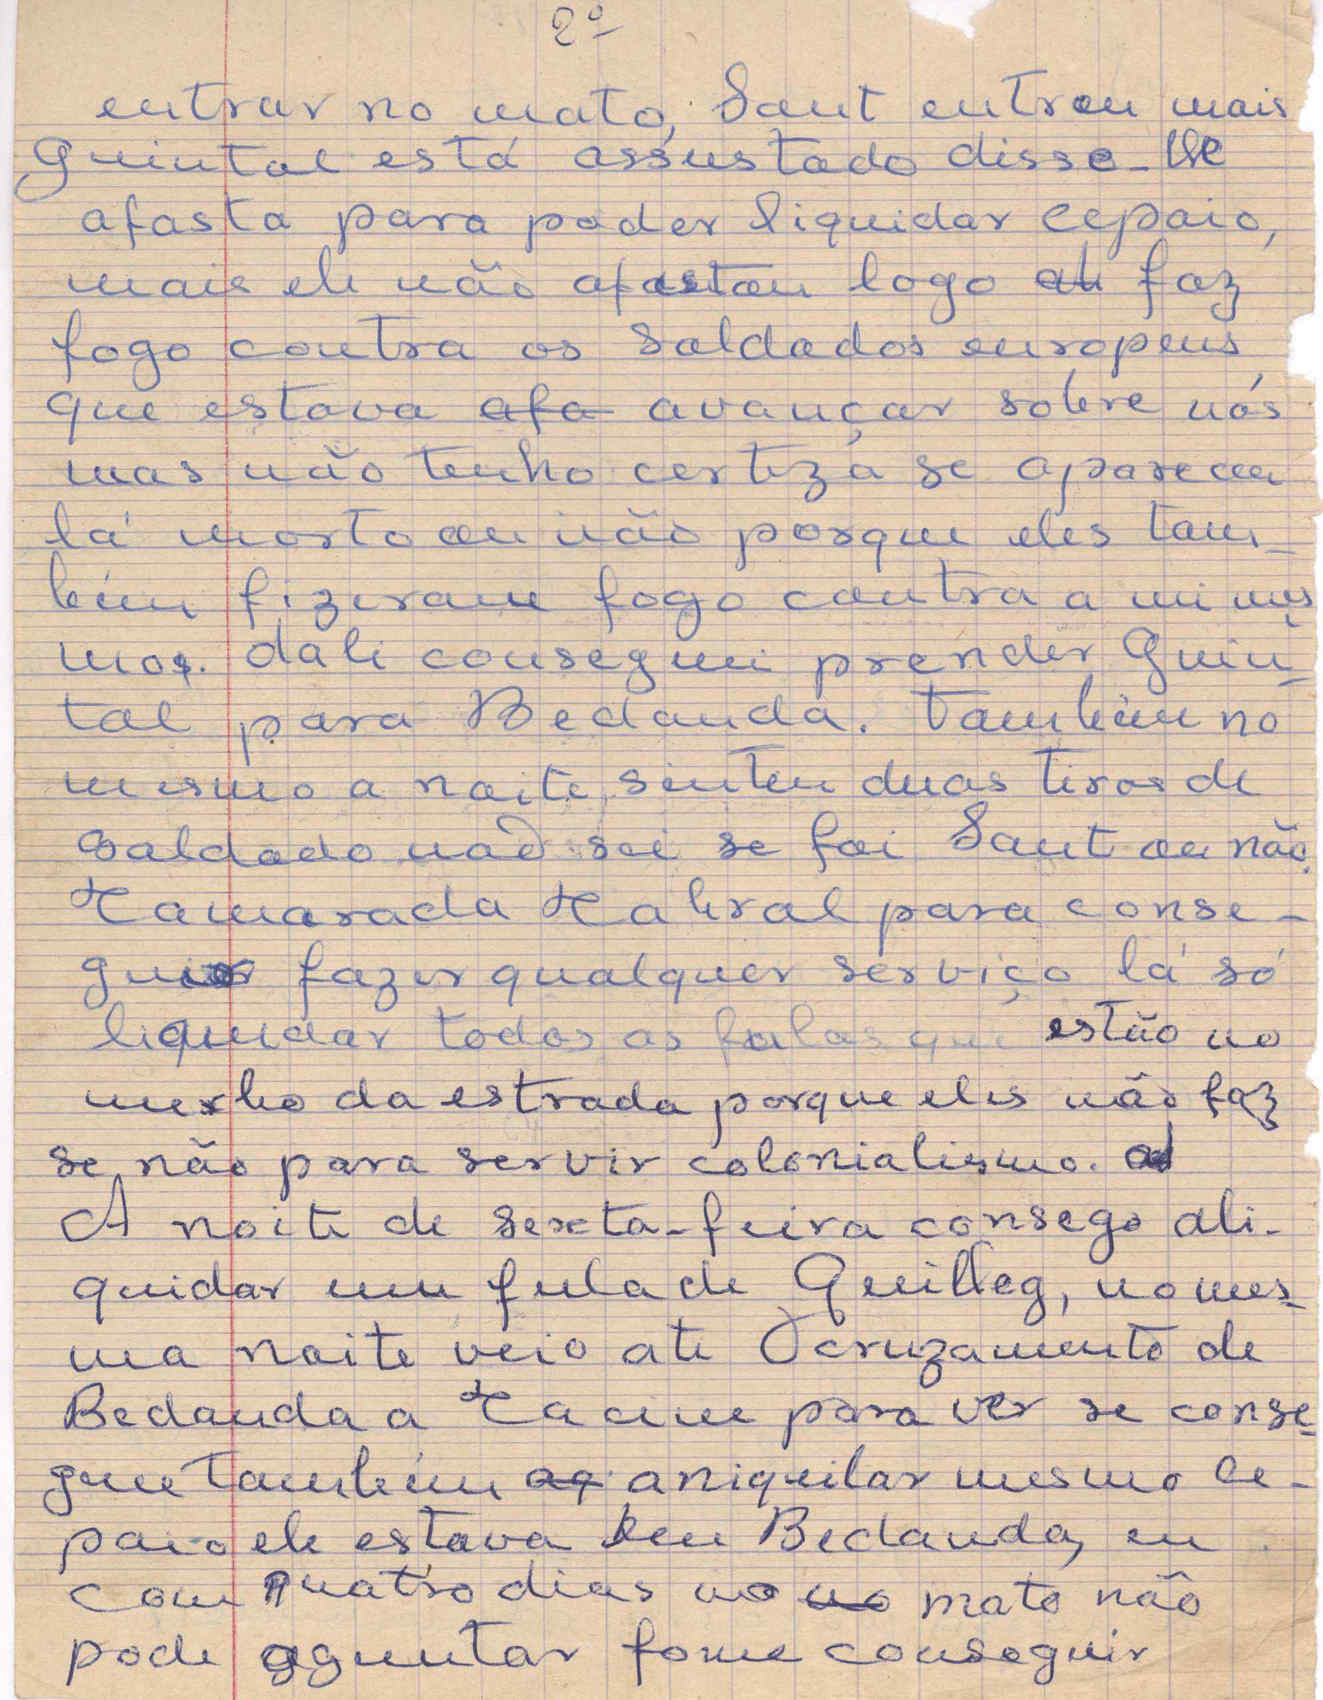 2º
entrar no mato, Sant entrou mais
Quintal está assustado disse-lhe
afasta para poder liquidar cepaio,
mais ele não afastou logo ele faz
fogo contra os saldados europeus
que estava afa avançar sobre nós
mas não tenho certeza se apareceu
lá morto ou não porque eles tam-
bém fizeram fogo contra a mi mes
mos. dali consegui prender Quin-
tal para Bedanda. também no
mesmo a noite, sinteu duas tiros de
saldado não sei se foi Sant ou não.
Camarada Cabral para conse-
guir fazer qualquer serviço lá só
liquidar todos os fulas que estão no
merho da estrada porque eles não faz
se não para servir colonialismo.
A noite de sexta-feira consego ali-
quidar um fula de Quilleg, no mes-
ma noite veio ate Ocruzamento de
Bedanda a Cacine para ver se conse-
gue também aq aniquilar mesmo Ce-
paio ele estava em Bedanda, eu
com quatro dias no no mato não
pode aguntar fome conseguir